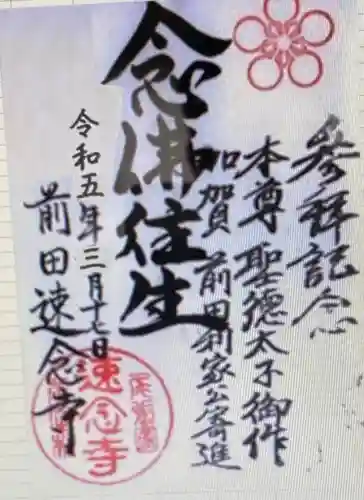 参拝記念
本尊 聖徳太子御作
加賀 前田利家公寄進
念佛往生
令和五年三月十七日
前田速念寺
速念寺